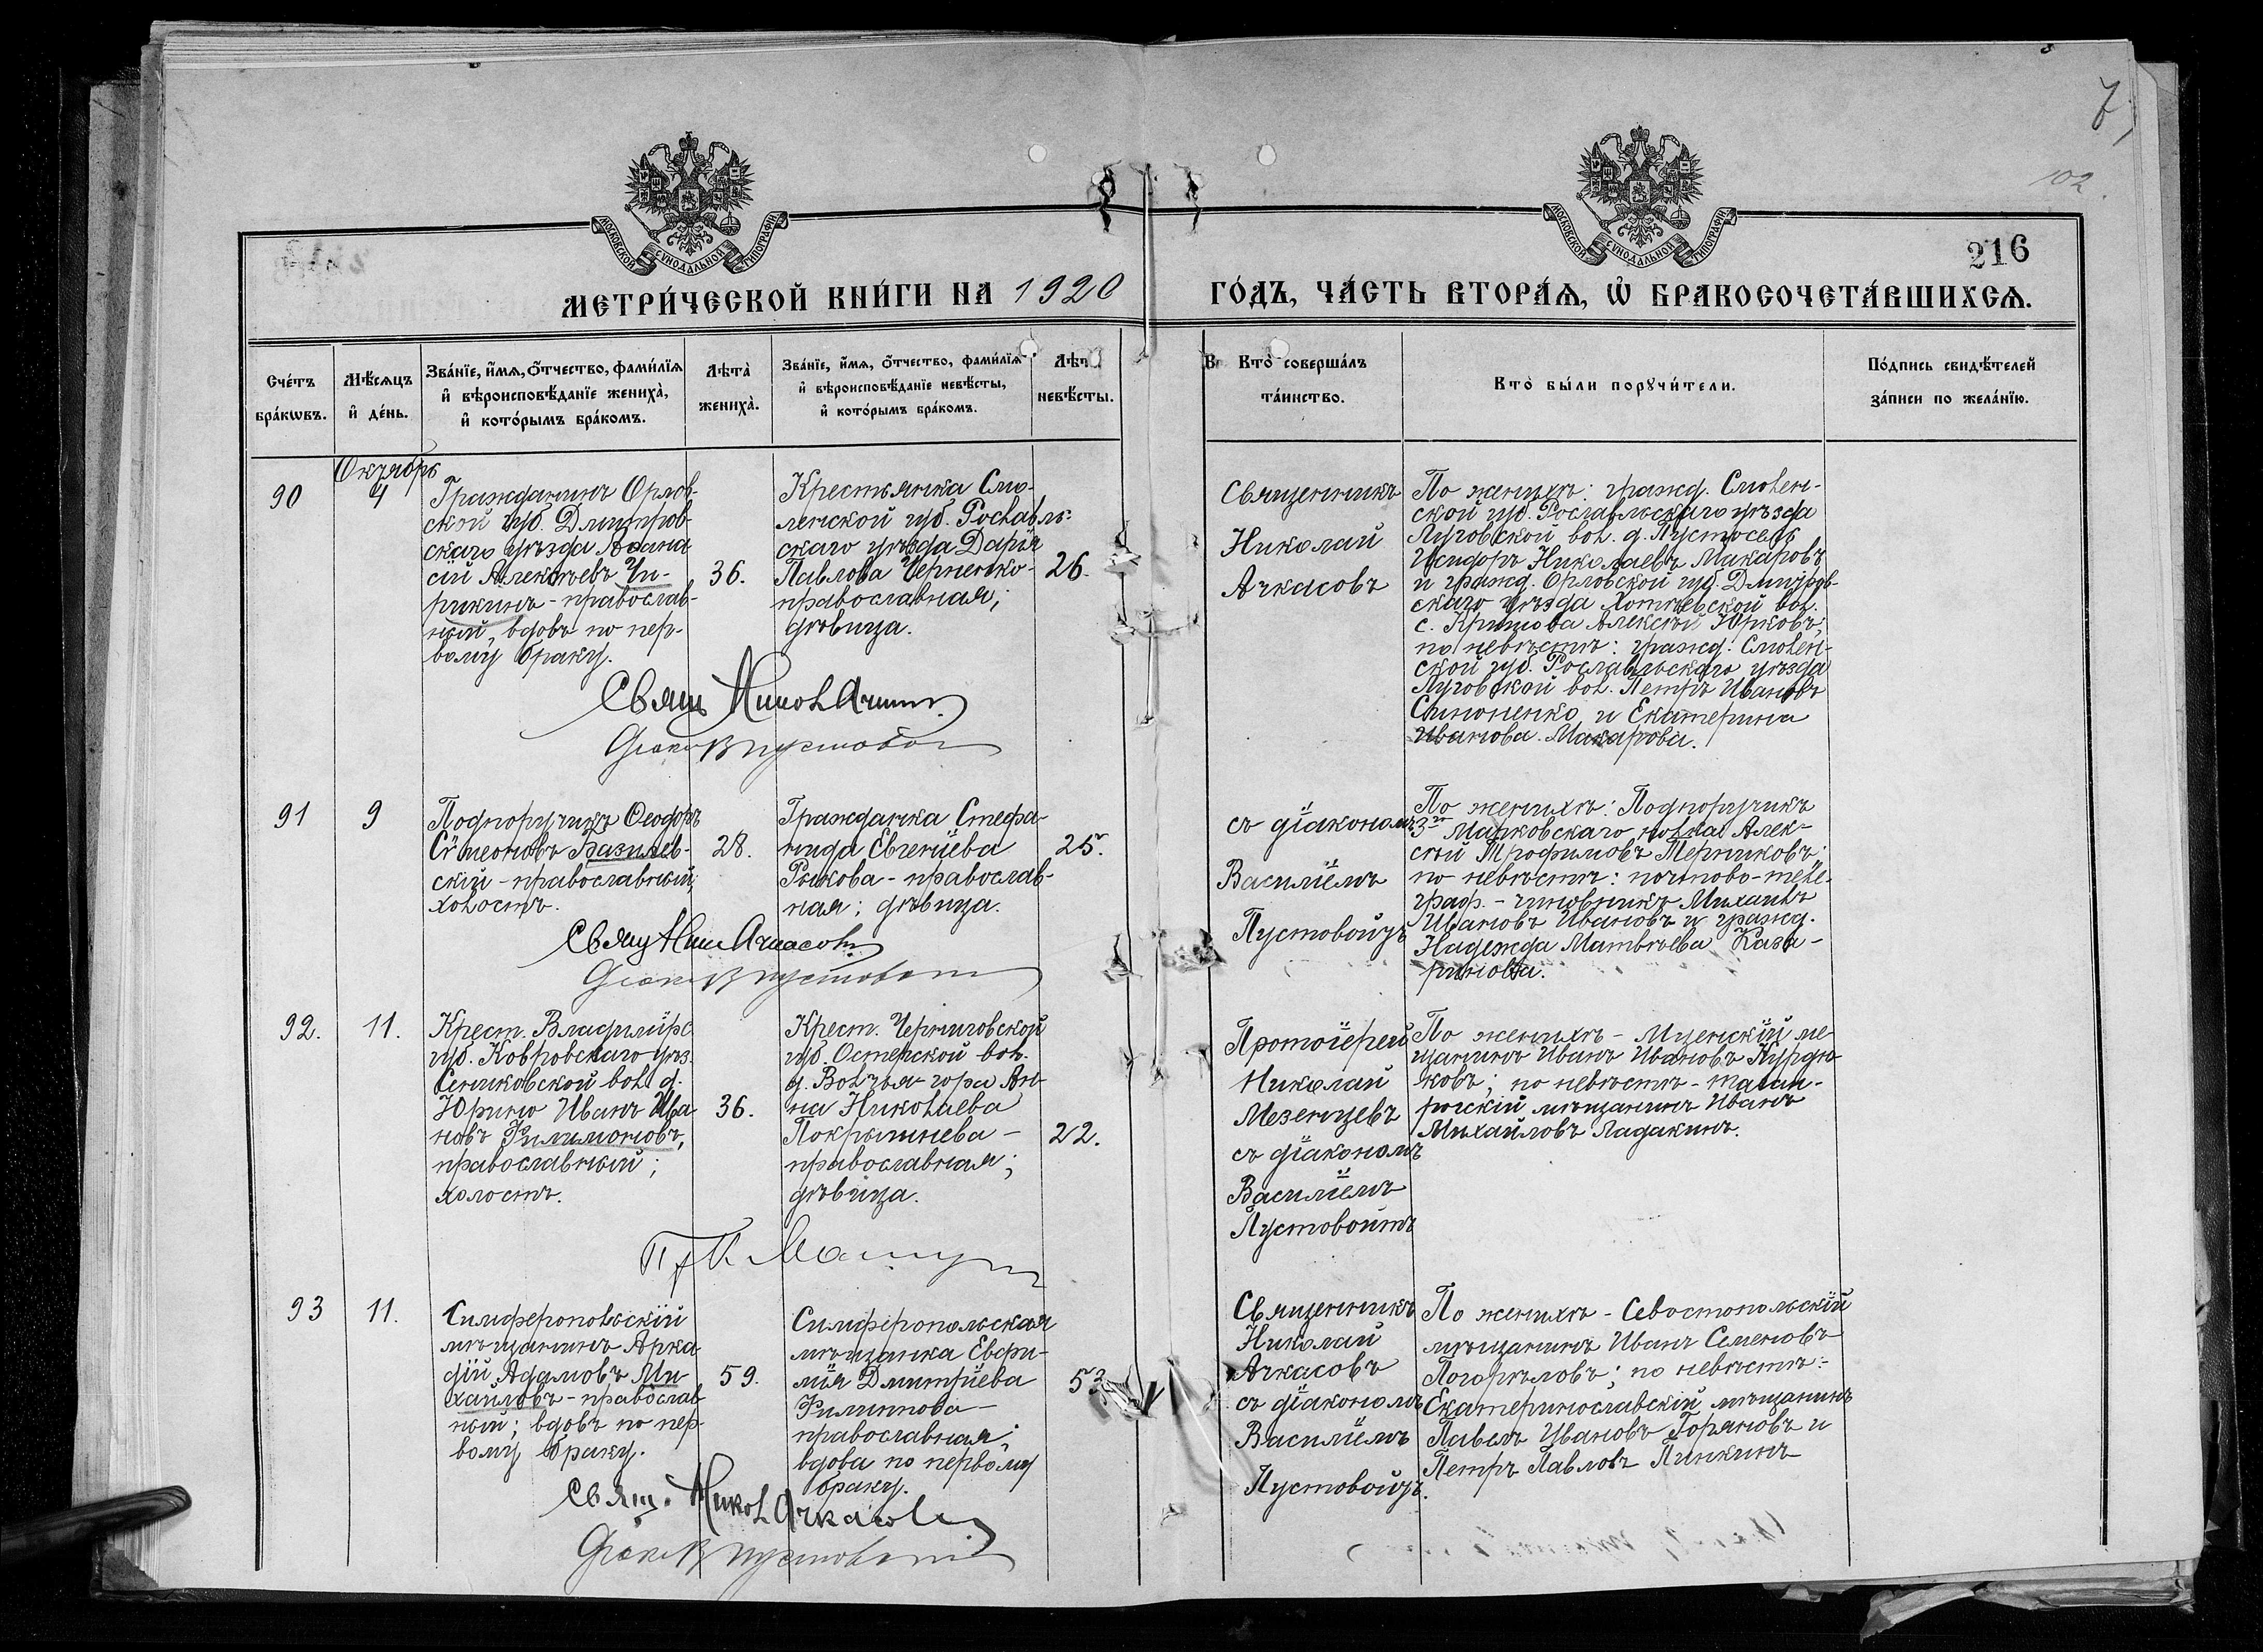 7
102
216
МОСКОВСКОЙ СѴНОДАЛЬНОЙ ТИПОГРАФІИ
МОСКОВСКОЙ СѴНОДАЛЬНОЙ ТИПОГРАФІИ
МЕТРИ́ЧЕСКОЙ КНИ́ГИ НА 1920 ГО́ДЪ, ЧА́СТЬ ВТОРА́Ѧ, Ѡ҆ БРАКОСОЧЕТА́ВШИХСѦ.
Сче́тъ
бра́кѡвъ.
Мѣ́сѧцъ
и҆ де́нь.
Зва́нїе, и҆́мѧ, ѻ҆́тчество, фами́лїѧ
и҆ вѣроисповѣ́данїе жениха̀,
и҆ кото́рымъ бра́комъ.
Лѣта̀
жениха̀.
Зва́нїе, и҆́мѧ, ѻ҆́тчество, фами́лїѧ
и҆ вѣроисповѣ́данїе невѣ́сты,
и҆ кото́рымъ бра́комъ.
невѣ́сты.
Кто̀ соверша́лъ
та́инство.
Кто̀ бы́ли порꙋчи́тели.
По́дпись свидѣ́телей
за́писи по жела́нїю.
90
Октябрь
4
Гражданинъ Орлов-
ской губ. Дмитров-
скаго уѣзда Аѳана
сій Алексѣевъ Чи-
рикинъ - православ-
ный, вдовъ по пер-
вому браку.
36.
Крестьянка Смо-
ленской губ. Рославль-
скаго уѣзда Дарія
Павлова Черненко -
православная;
дѣвица.
26.
Священникъ
Николай
Ачкасовъ
По женихѣ: гражд. Смолен-
ской губ. Рославльскаго уѣзда
Луговской вол. д. Пустосель
Исидоръ Николаевъ Макаровъ
и гражд. Орловской губ. Дмитров-
скаго уѣзда Хотѣевской вол.
с. Алексѣй Юрковъ,
по невѣстѣ: гражд. Смолен-
ской губ. Рославльскаго уѣзда
Луговской вол. Петръ Ивановъ
Симоненко и Екатерина
Иванова Макарова.
Свящ Никол
Діак В Пустовой
91
9
Подпоручикъ Ѳеодоръ
Сѵмеоновъ Базилев-
скій - православный,
холостъ.
28.
Гражданка Стефа-
нида Евгеніева
Рыкова - православ-
ная; дѣвица.
25.
съ діакономъ
Василіемъ
Пустовойтъ
По женихѣ: Подпоручикъ
3го Марковскаго полка Алек-
сѣй Трофимовъ Мерников;
по невѣстѣ: почтово-теле-
граф. - чиновникъ Михаилъ
Ивановъ Ивановъ и гражд.
Надежда Матвѣева Каза-
ринова.
Свящ Ник Ачкасовъ
Діак В Пустовойт
92.
11.
Крест. Владимірс.
губ. Ковровскаго уѣз.
Сенниковской вол. д.
Юрино Иванъ Ива
новъ Филимоновъ,
православный;
холостъ.
36.
Крест. Черниговской
губ. Остерской вол.
д. Волчья-гора Ан-
на Николаева
Покрышнева -
православная;
дѣвица.
22.
Протоіерей
Николай
Мезенцевъ
съ діакономъ
Василіемъ
Пустовойтъ
По женихѣ - Мценскій мѣ-
щанинъ Иванъ Ивановъ Курдю-
ковъ; по невѣстѣ - таган-
рогскій мѣщанинъ Иванъ
Михайловъ Ладакинъ.
93
11.
Симферопольскій
мѣщанинъ Арка
дій Адамовъ Ми-
хайловъ - православ
ный; вдовъ по пер-
вому браку.
59.
Симферопольская
мѣщанка Евфи-
мія Дмитріева
Филиппова -
православная;
вдова по первому
браку.
53
Священникъ
Николай
Ачкасовъ
съ діакономъ
Василіемъ
Пустовойтъ.
По женихѣ - Севостопольскій
мѣщанинъ Иванъ Семеновъ
Погорѣловъ; по невѣстѣ:-
Екатеринославскій мѣщанинъ
Павелъ Ивановъ Горяновъ и
Петръ Павловъ Пинкинъ
Свящ. Никол Ачкасов
Діак В Пустовойт